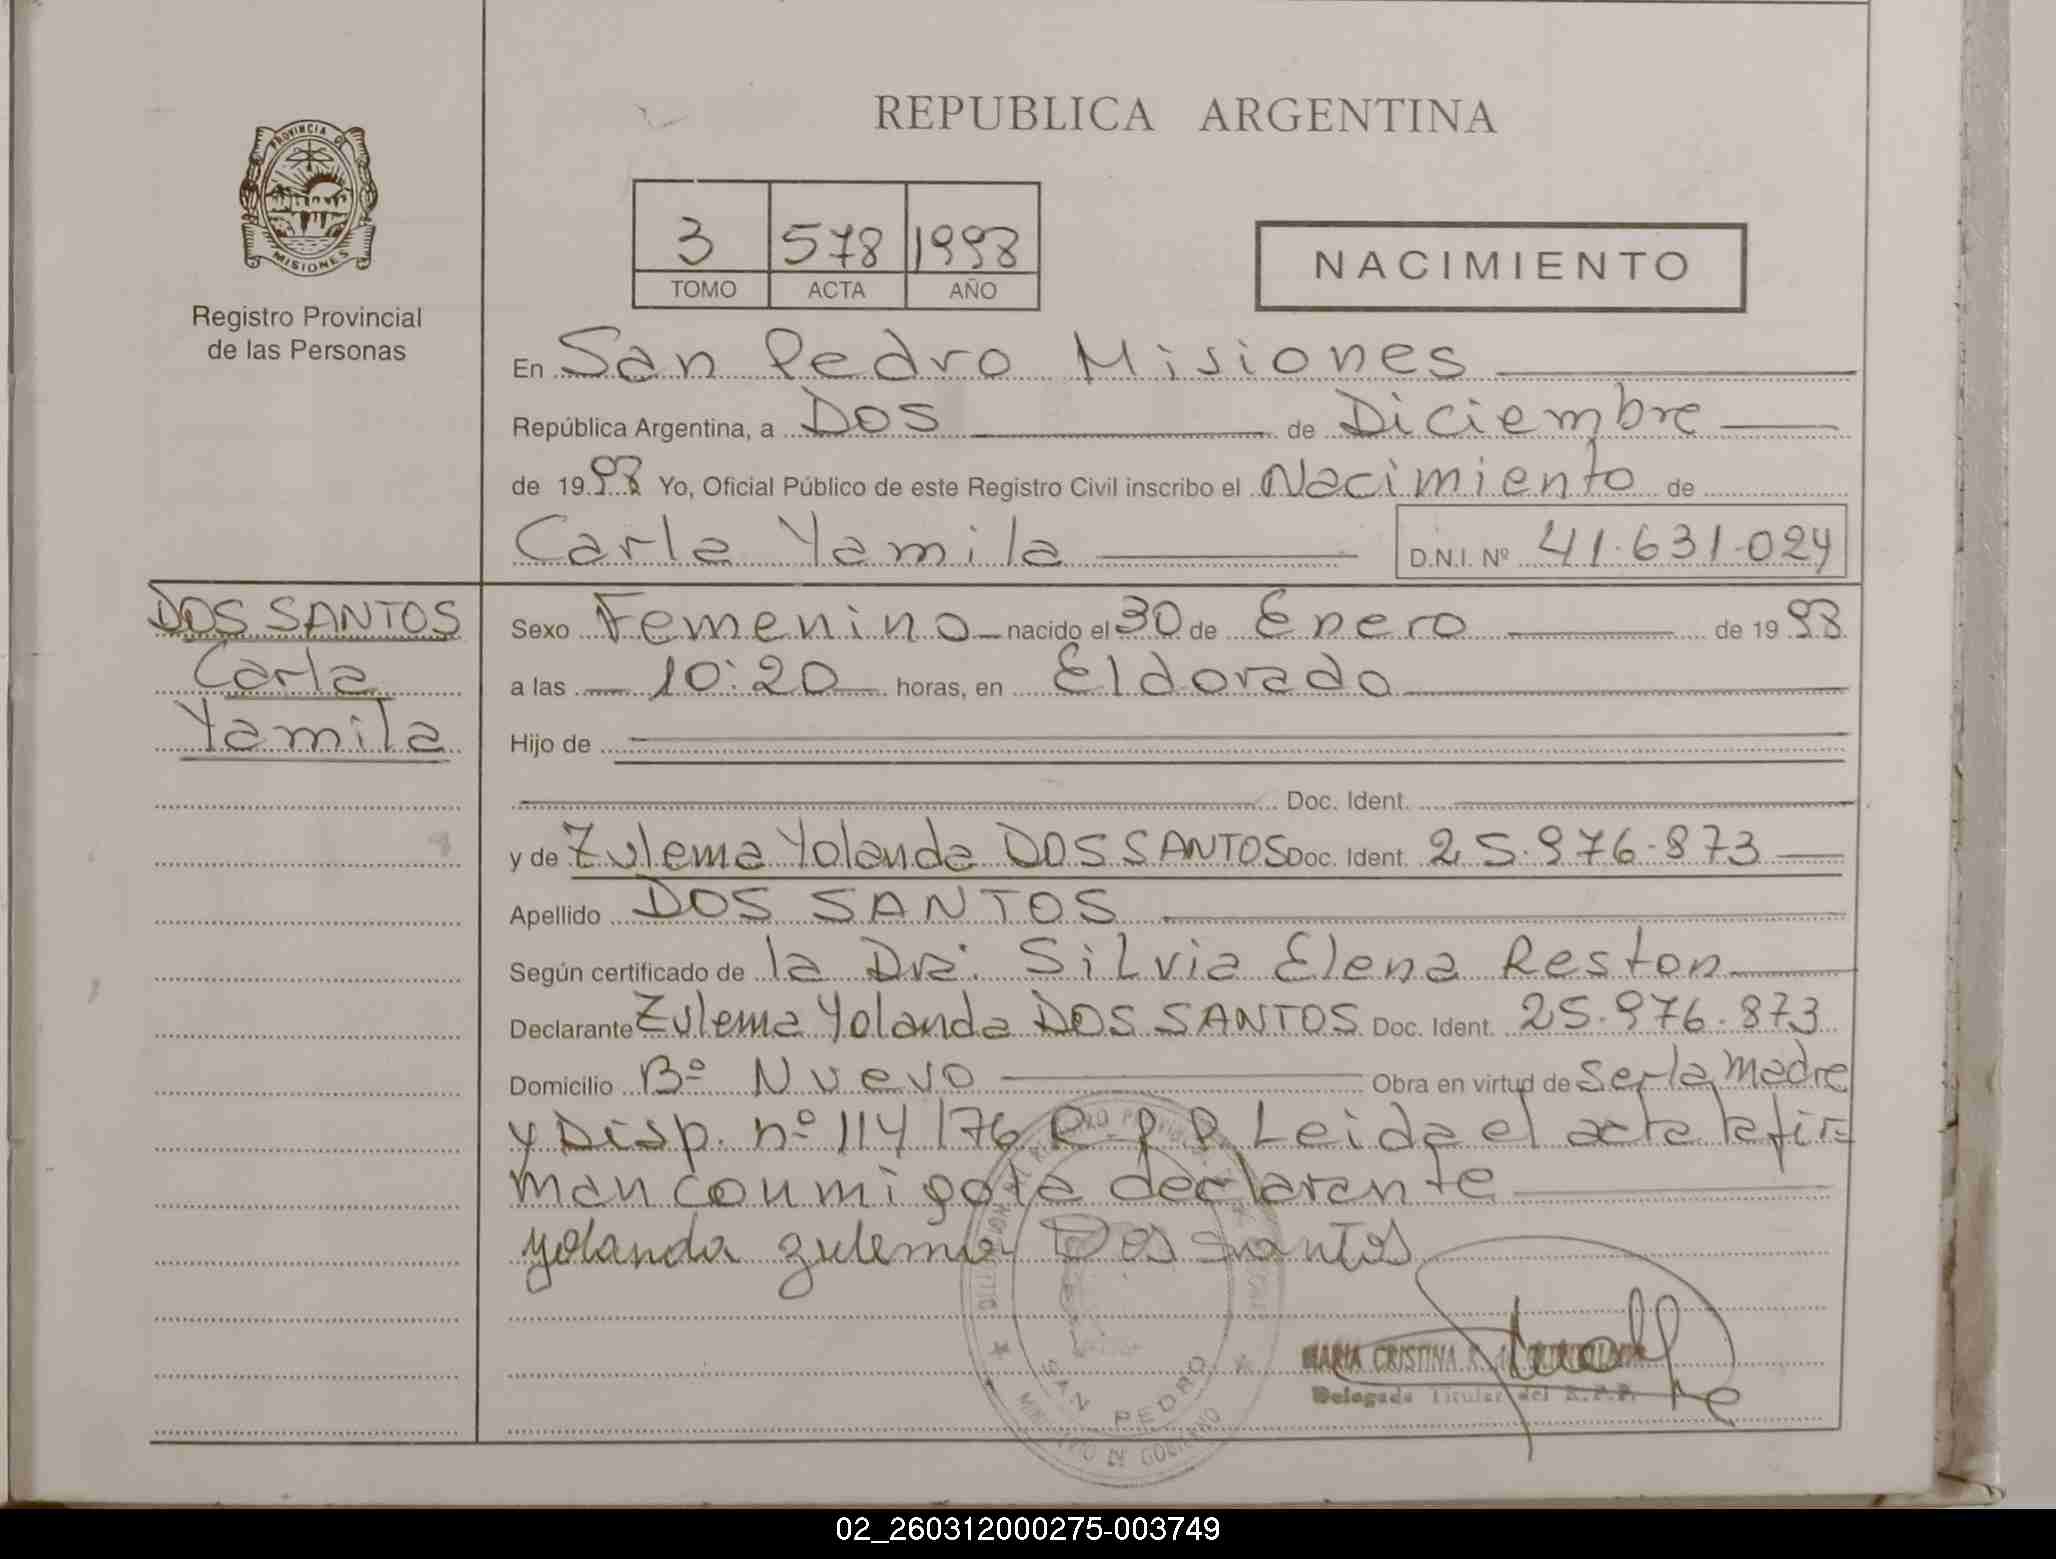 PROVINCIA DE
MISIONES
Registro Provincial
de las Personas
REPUBLICA ARGENTINA
3 578 1998
TOMO ACTA AÑO
NACIMIENTO
En San Pedro Misiones
República Argentina, a Dos de Diciembre
de 1998 Yo, Oficial Público de este Registro Civil inscribo el Nacimiento de
Carla Yamila D.N.I. Nº 41.631.024
DOS SANTOS
Carla
Yamila
Sexo Femenino nacido el 30 de Enero de 1998
a las 10:20 horas, en Eldorado
Hijo de
Doc. Ident.
y de Zulema Yolanda DOS SANTOS Doc. Ident. 25.976.873
Apellido DOS SANTOS
Según certificado de la Dra. Silvia Elena Reston
Declarante Zulema Yolanda DOS SANTOS Doc. Ident. 25.976.873
Domicilio Bº Nuevo Obra en virtud de Ser la madre
y Disp. nº 114/76 R.P.P. Leida el acta la fir=
man conmigo la declarante
yolanda zulema Dos santos
MARIA CRISTINA
Delegada Titular del R.P.P.
SAN PEDRO
MINISTERIO DE GOBIERNO
02_260312000275-003749